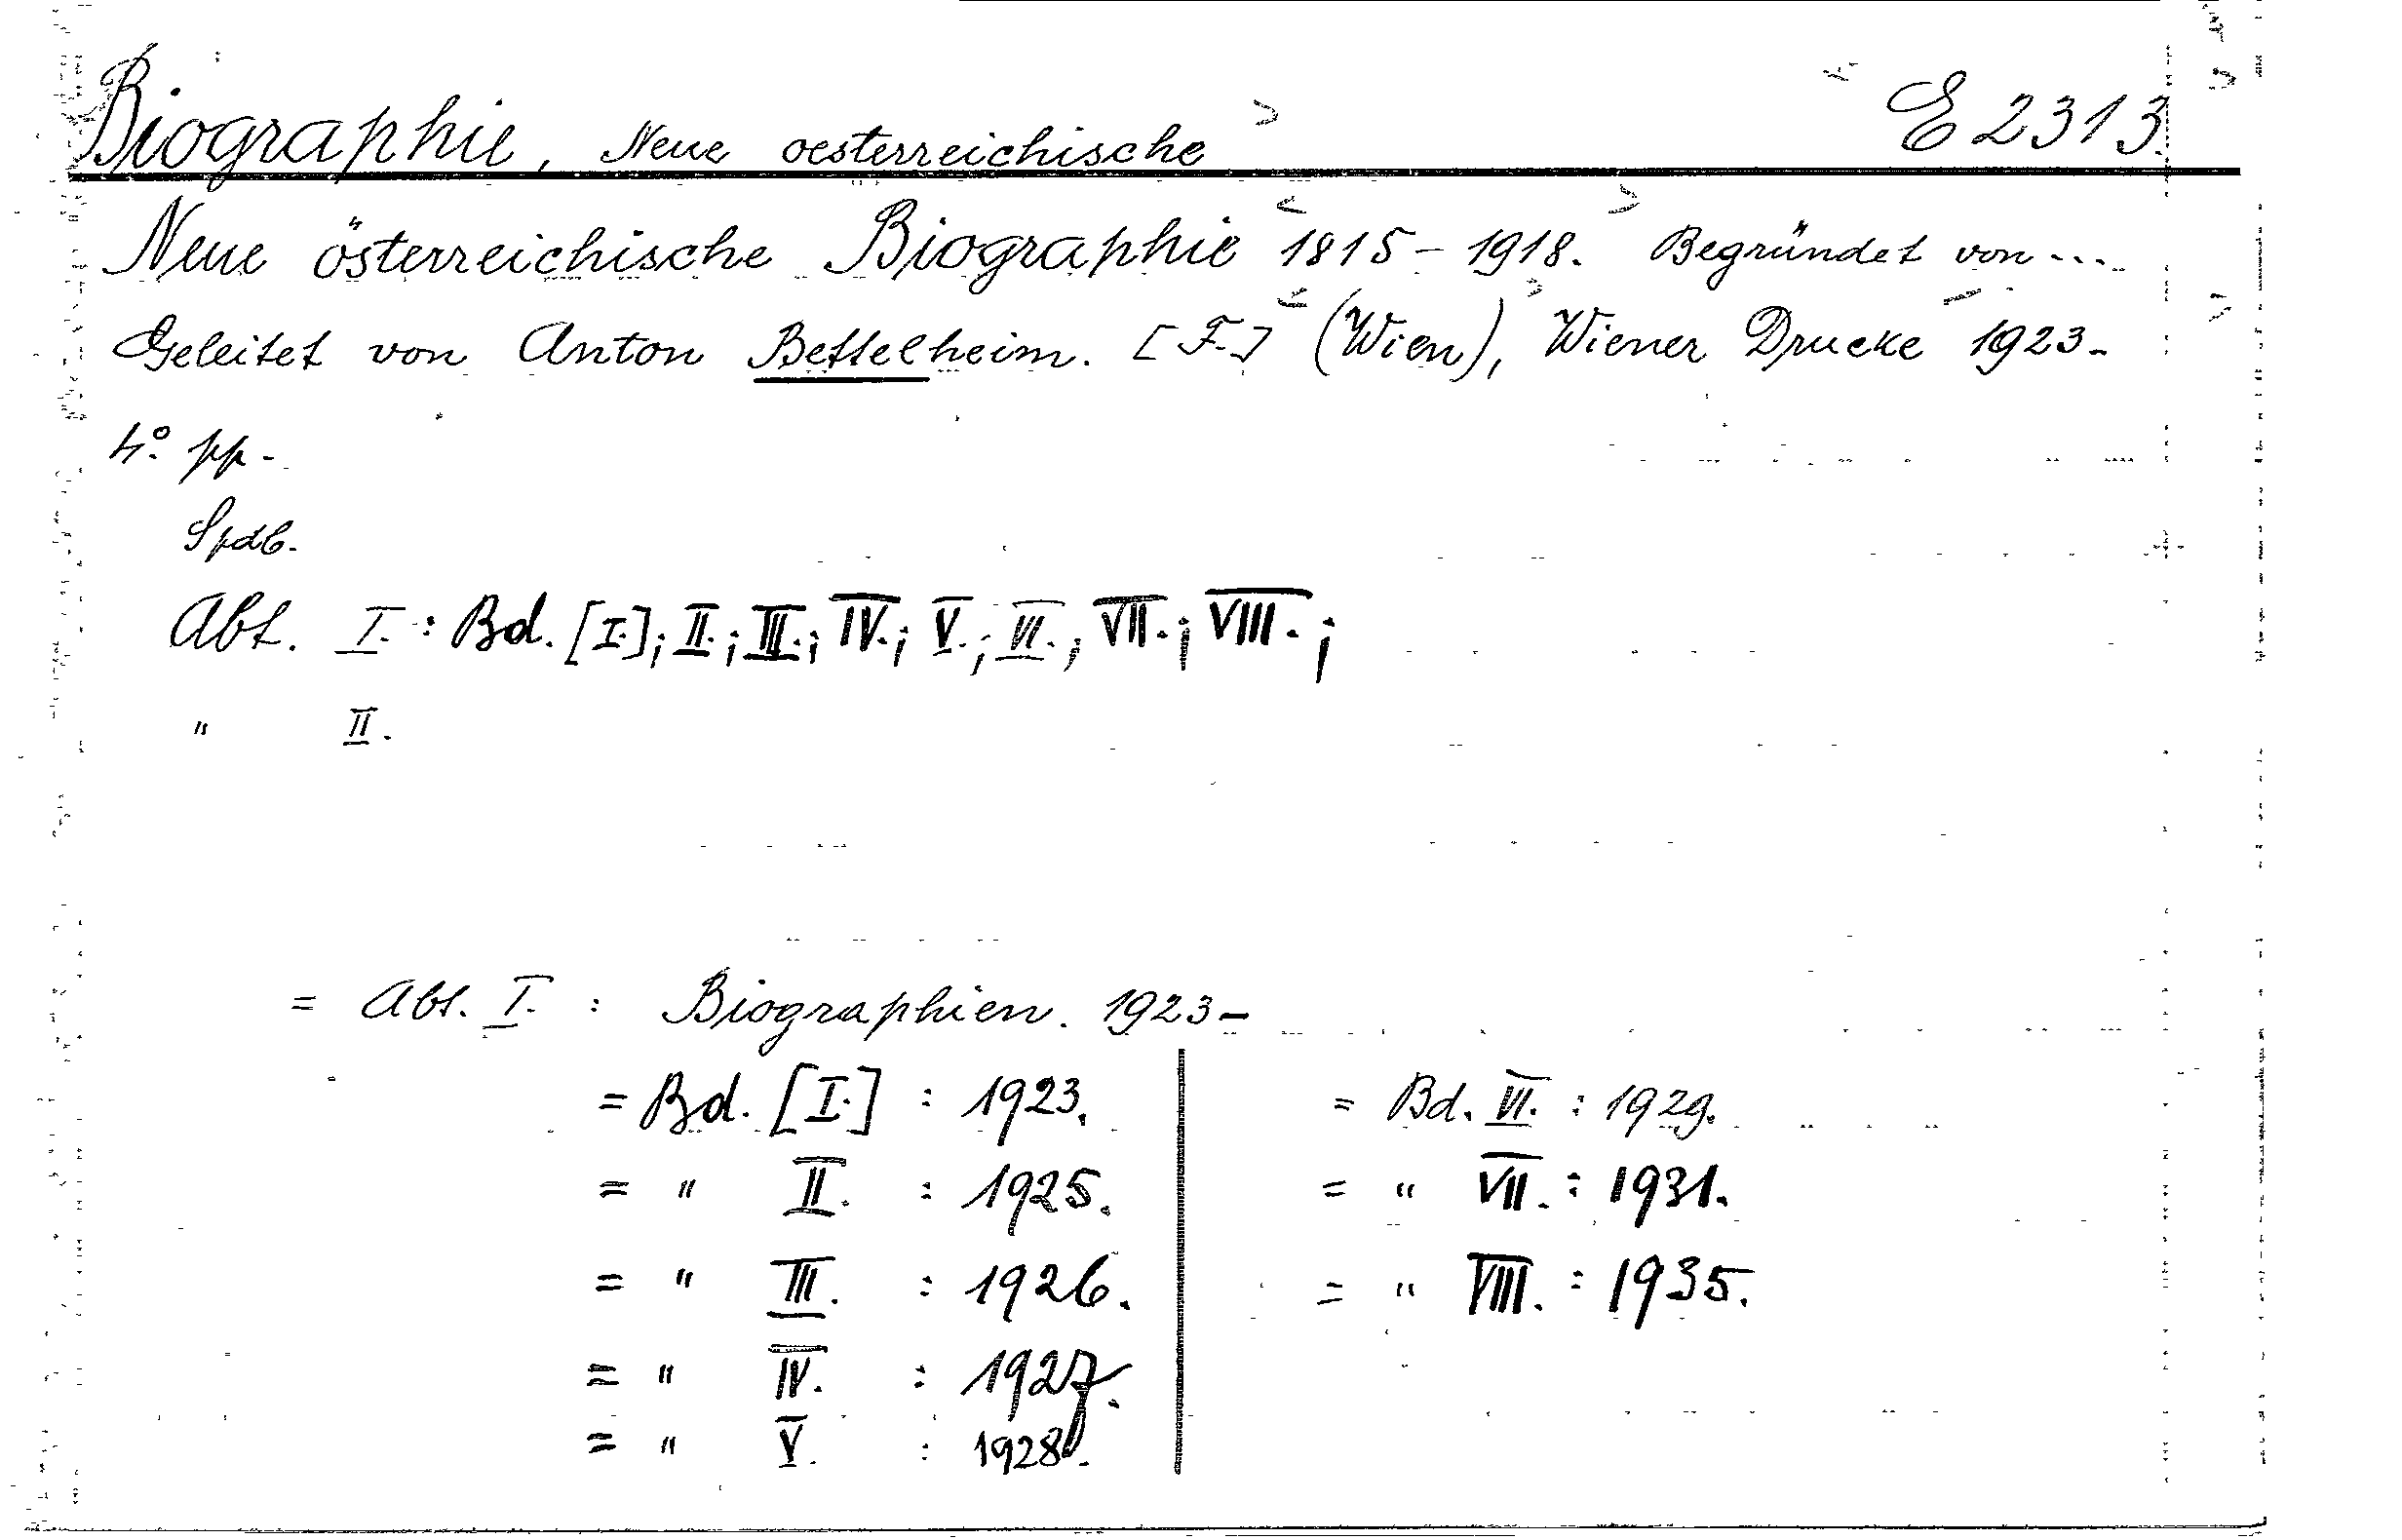 Biographie, Neue oesterreichische E 2313.
Neue österreichische Biographie 1815-1918. Begründet von ...
Geleitet von Anton Bettelheim. [F.] (Wien), Wiener Drucke 1923-
4° pp-
Spdb.
Abt. I.: Bd. [I.]; II.; III.; IV.; V.; VI.; VII.; VIII.;
" II.
= Abt. I. : Biographien. 1923-
= Bd. [I.] : 1923.
= " II. : 1925.
= " III. : 1926.
= " IV. : 1927.
= " V. : 1928.
= Bd. VI. : 1929.
= " VII. : 1931.
= " VIII. : 1935.